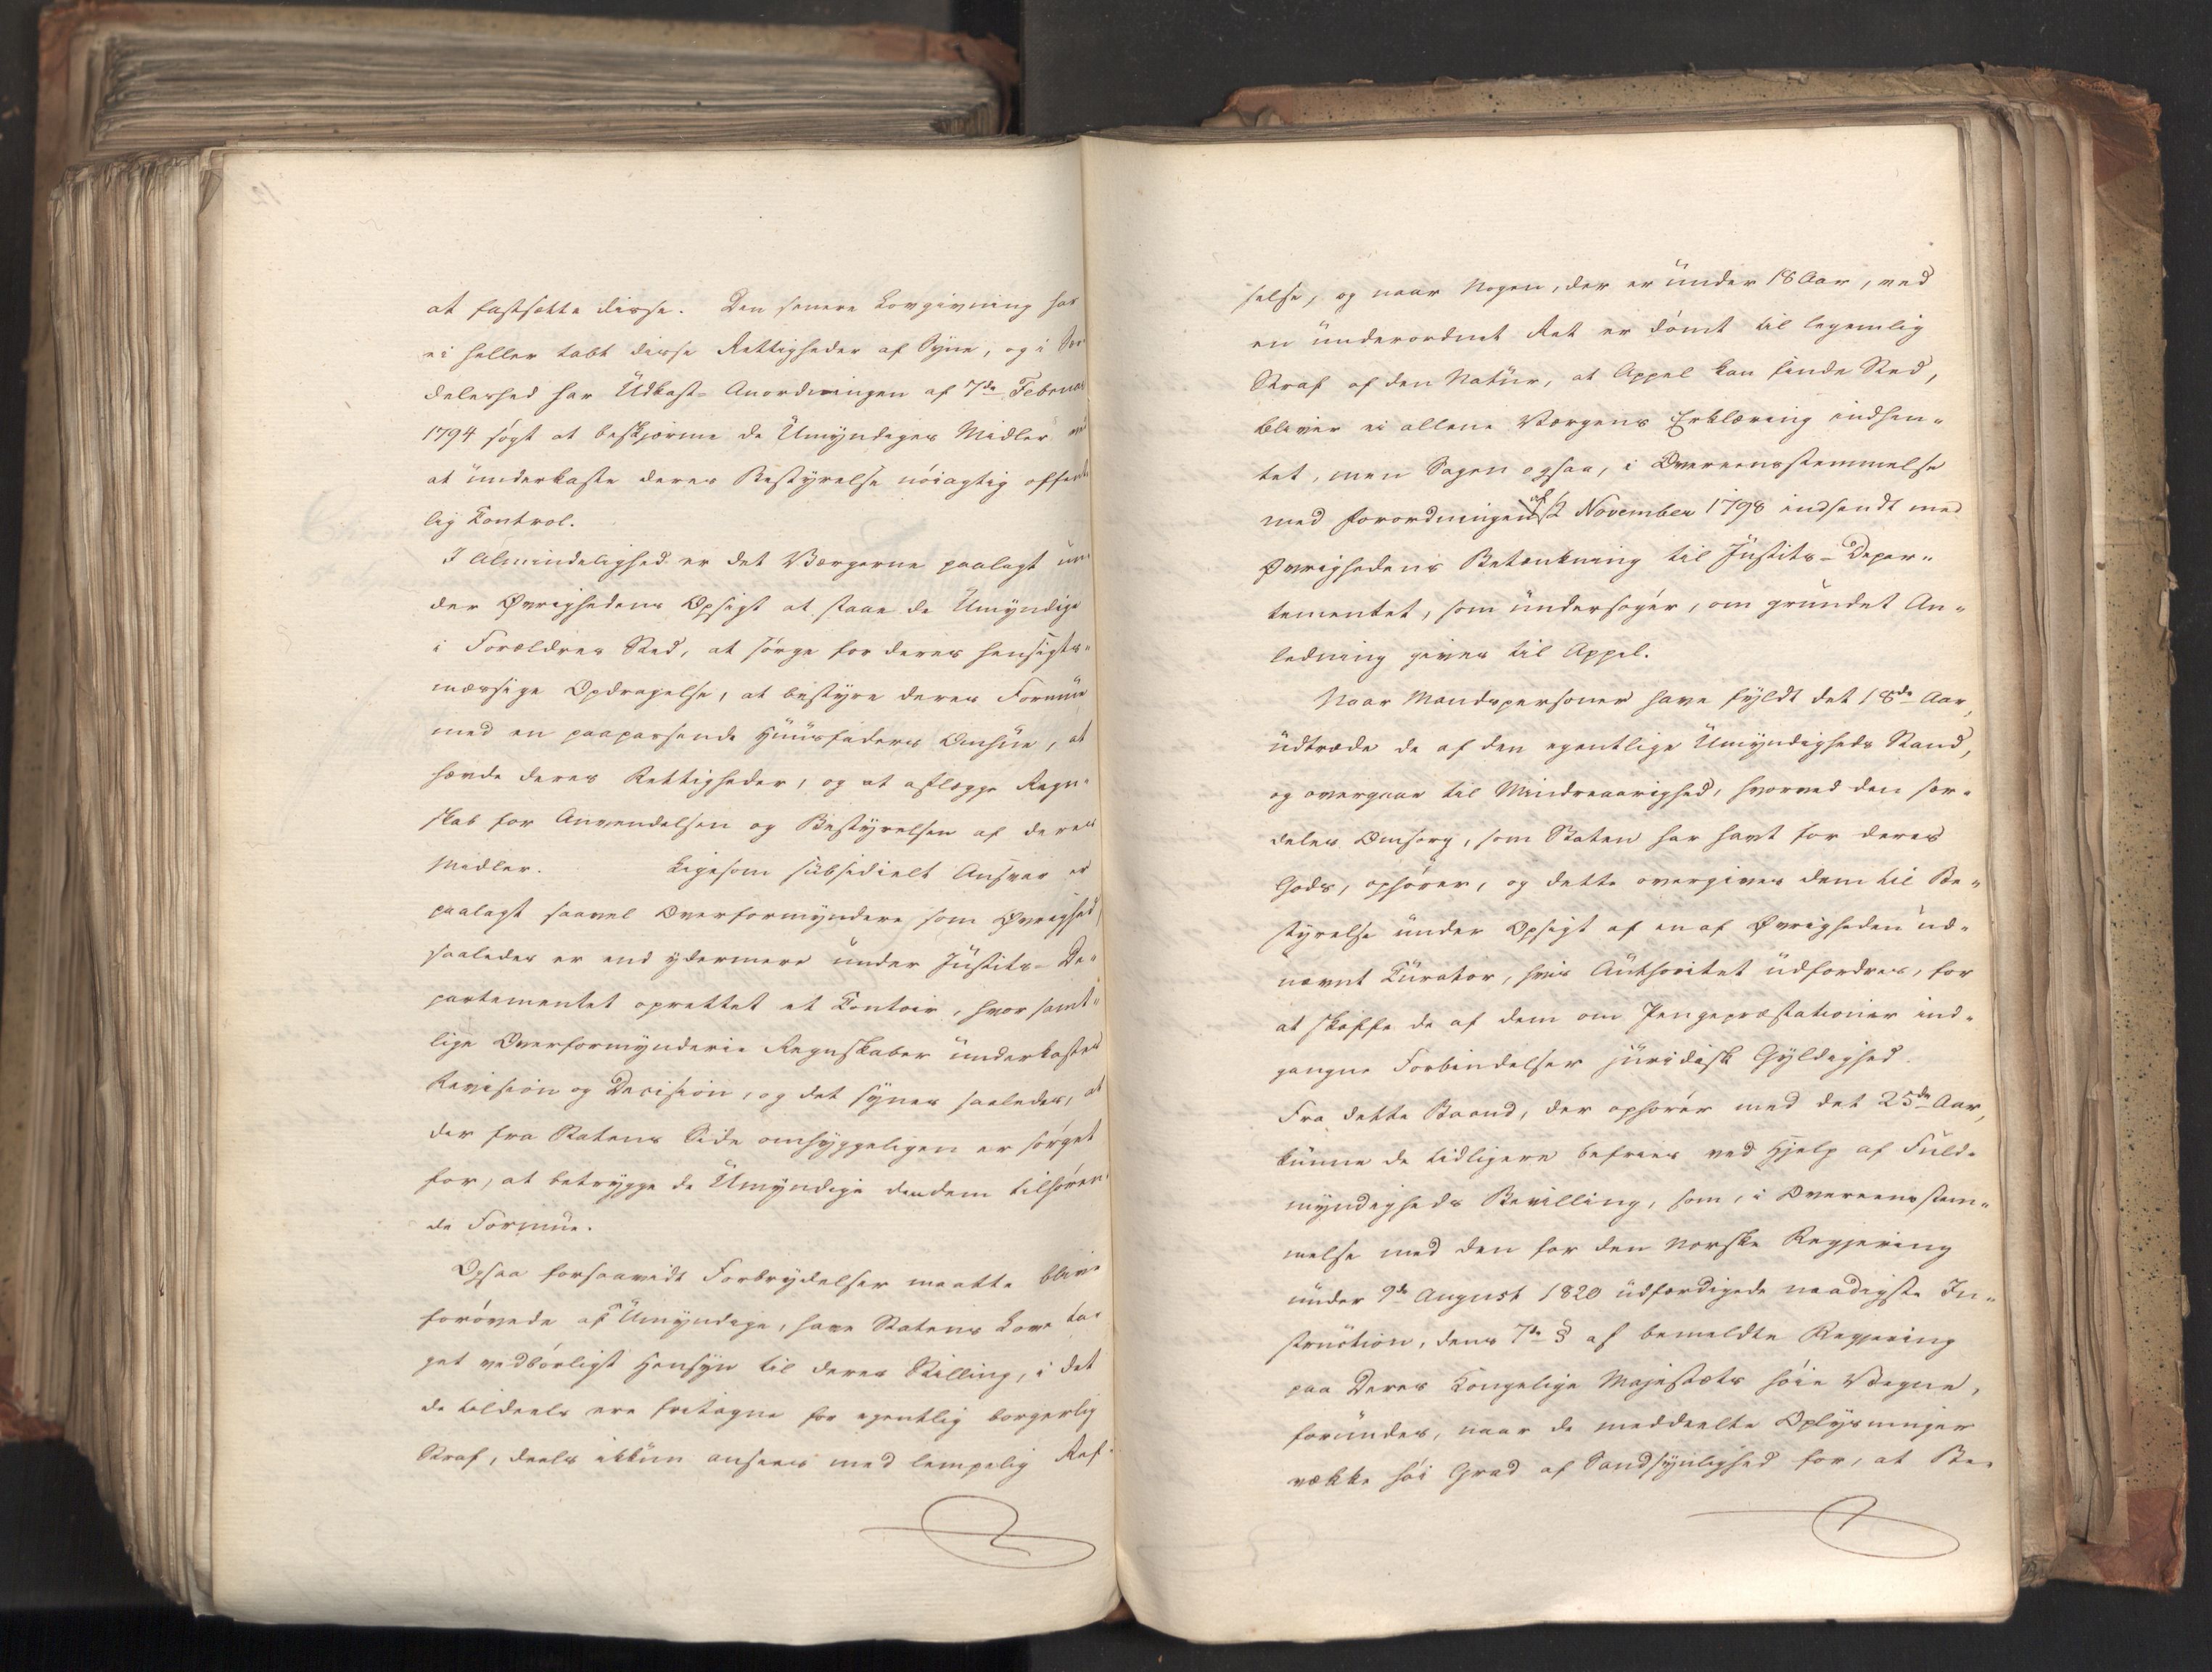 at fastsætte disse. Den senere Lovgivning har
ei heller tabt disse Rettigheder af Syne, og i Sær
deleshed har Udkast-Anordningen af 7de Februar
1794 søgt at beskjærme de Umyndiges Midler ved
at underkaste deres Bestyrelse nøiagtig offent
lig Control.
I Almindelighed er det Værgerne paalagt un-
der Øvrighedens Opsigt at staae de Umyndige
i Forældres Sted, at sørge for deres hensigts-
mæssige Opdragelse, at bestyre deres Formue
med en paapassende Huusfaders Omhue, at
hævde deres Rettigheder, og at aflægge Regn-
skab for Anvendelsen og Bestyrelsen af deres
Midler. Ligesom subsidielt Ansvar er
paalagt saavel Overformyndere som Øvrighed,
saaledes er end ydermere under Justits-De-
partementet oprettet et Contoir, hvor samt-
lige Overformynderie Regnskaber underkastes
Revision og Decision, og det synes saaledes, at
der fra Statens Side omhyggeligen er sørget
for, at betrygge de Umyndige den dem tilhøren-
de Formue.
Ogsaa forsaavidt Forbrydelser maatte blive
forøvede af Umyndige, have Statens Love ta-
get vedbørligt Hensyn til deres Stilling, i det
de tildeels ere fritagne for egentlig borgerlig
Straf, deels ikkun ansees med lempelig Ref-
selse, og naar Nogen, der er under 18 Aar, ved
en underordnet Ret er dømt til legemlig
Straf af den Natur, at Appel kan finde Sted,
bliver ei allene Værgens Erklæring indhen-
tet, men Sagen ogsaa, i Overeensstemmelse
med Forordningen af November 1798 indsendt med
Øvrighedens Betænkning til Justits-Depar-
tementet, som undersøger, om grundet An-
ledning gives til Appel.
Naar Mandspersoner have fyldt det 18de Aar,
udtræde de af den egentlige Umyndigheds Stand,
og overgaae til Mindreaarighed, hvorved den sær-
deles Omsorg, som Staten har havt for deres
Gods, ophører, og dette overgives dem til Be-
styrelse under Opsigt af en af Øvrigheden ud-
nævnt Curator, hvis Authoritet udfordres, for
at skaffe de af dem om Pengepræstationer ind-
gangne Forbindelser juridisk Gyldighed.
Fra dette Baand, der ophører med det 25de Aar,
kunne de tidligere befries ved Hjelp af Fuld-
myndigheds Bevilling, som, i Overeensstem-
melse med den for den norske Regjering
under 9de August 1820 udfærdigede naadigste In-
struction, dens 7de § af bemeldte Regjering
paa Deres Kongelige Majestæts høie Vegne,
forundes, naar de meddeelte Oplysninger
vække høi Grad af Sandsynlighed for, at Be-